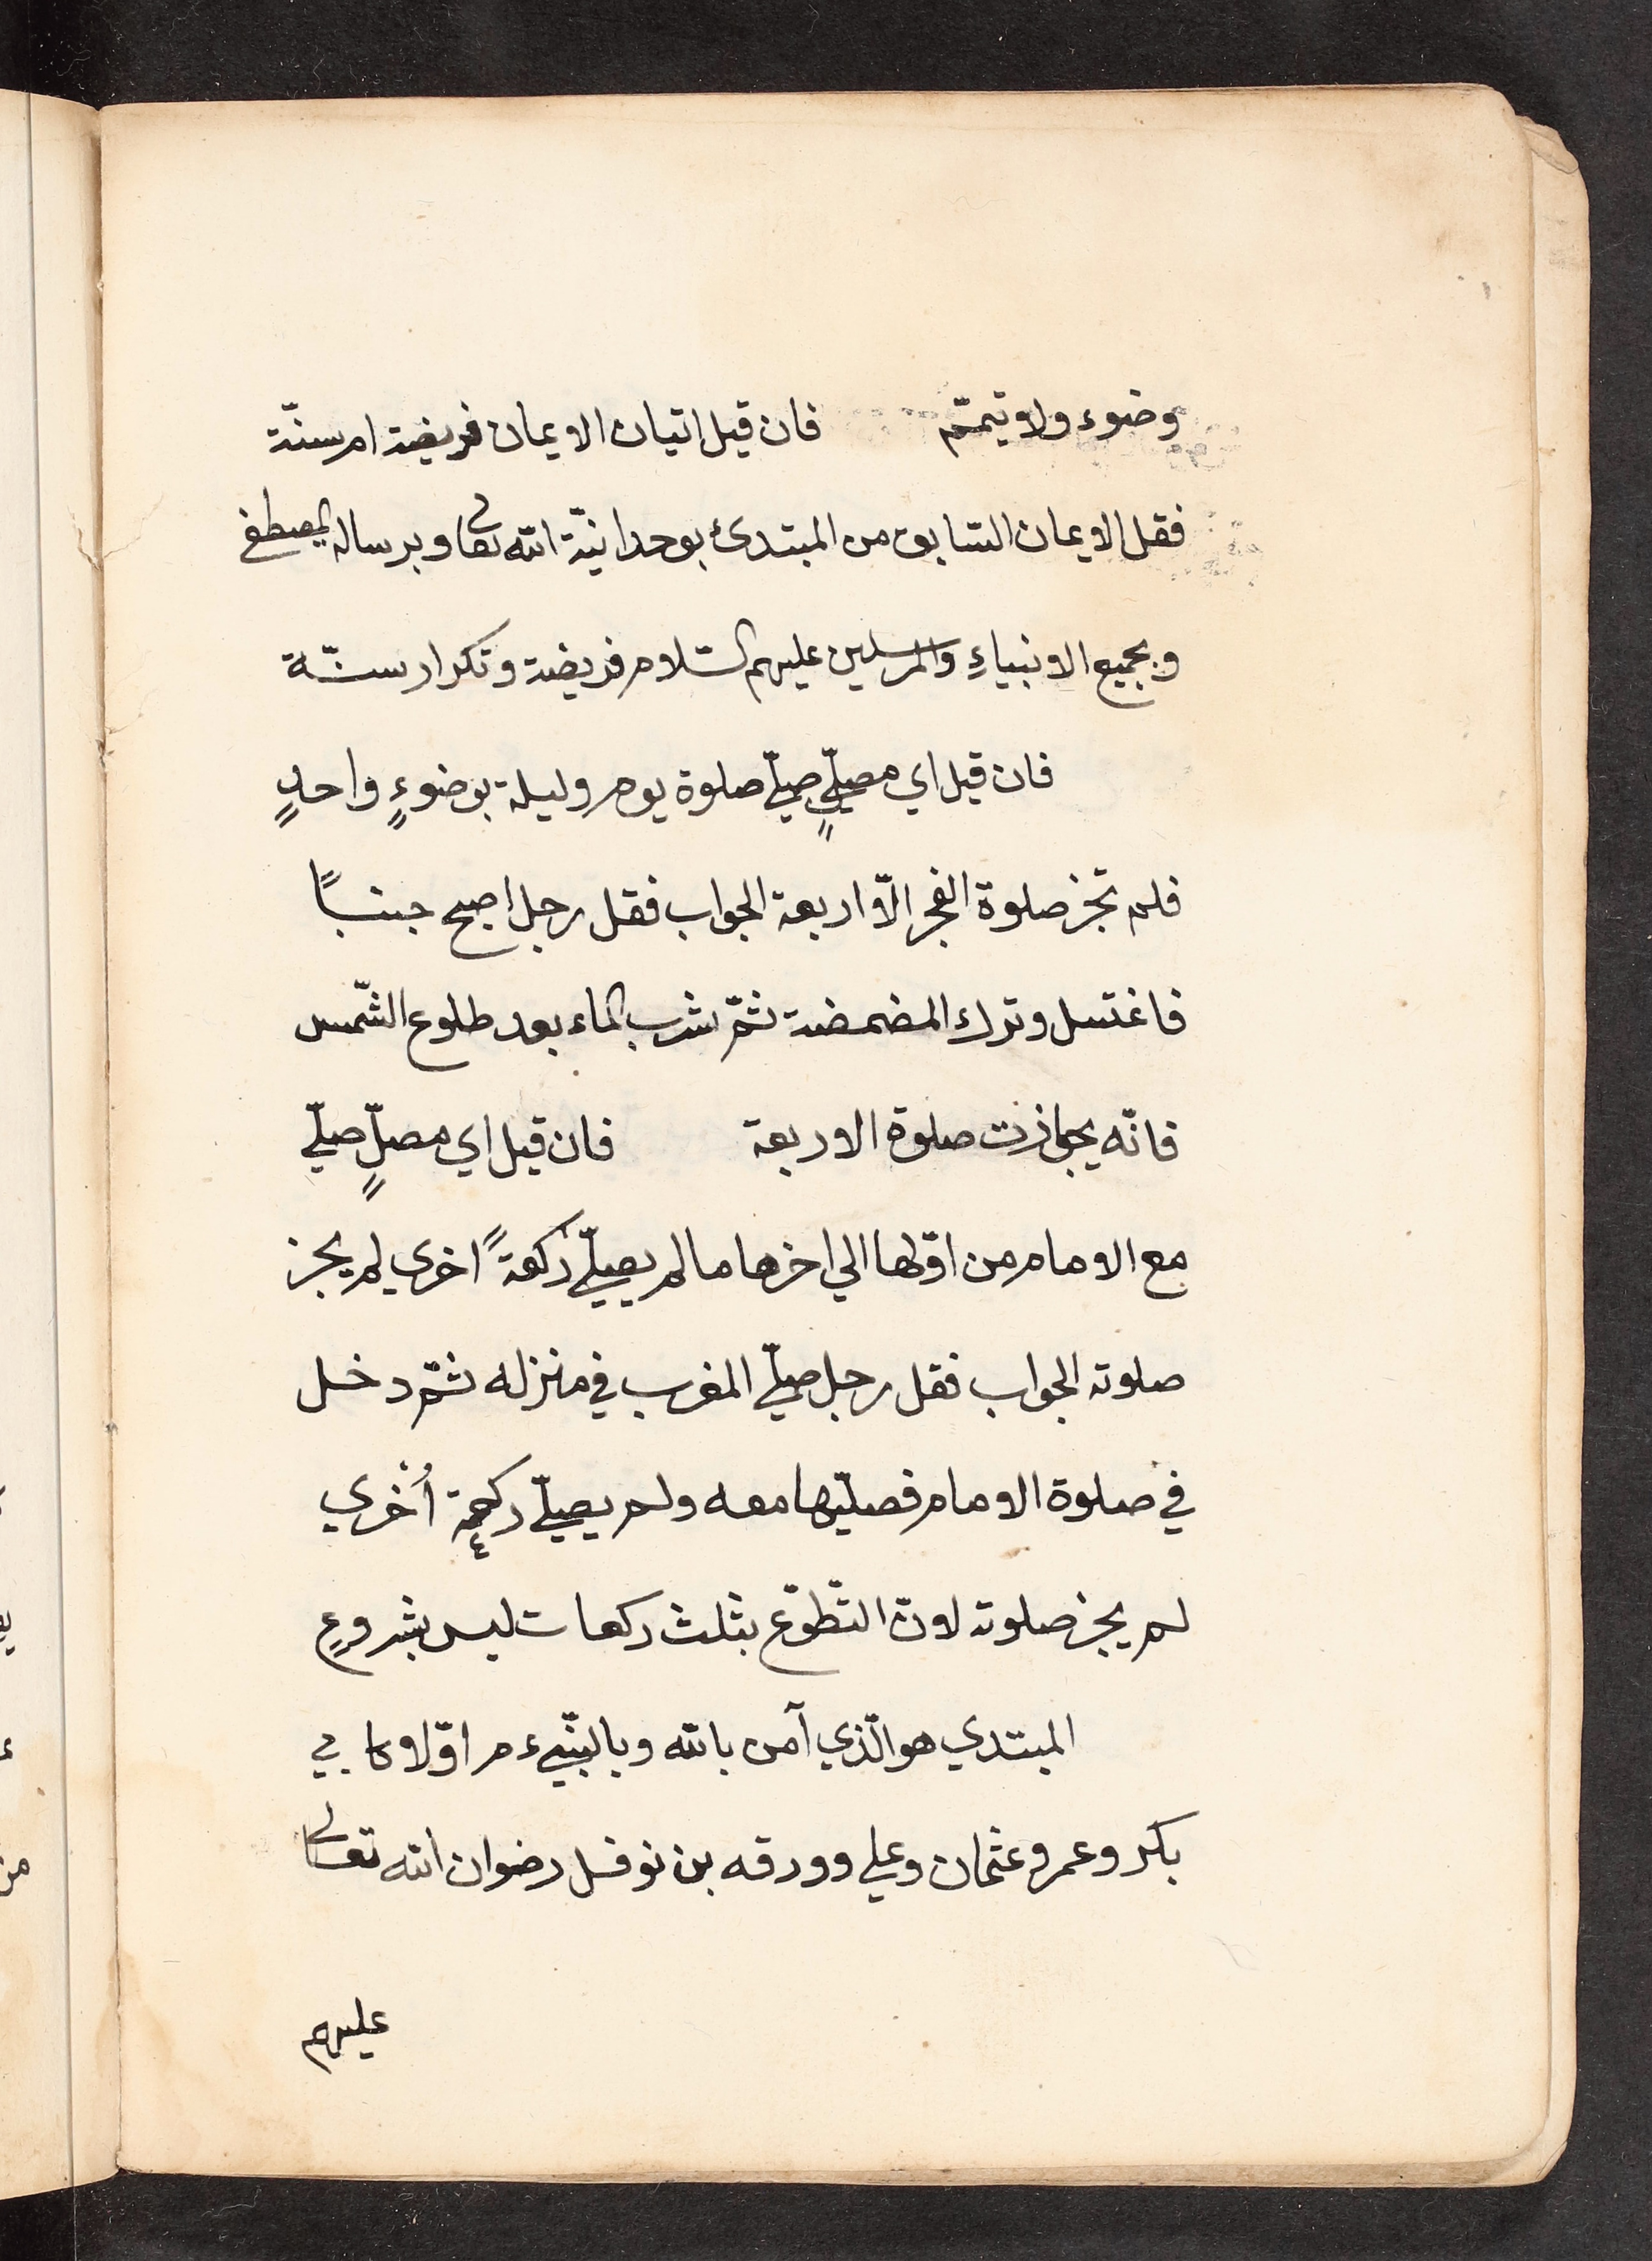 وضوء ولا تيمّم فان قيل اتيان الايمان فريضة ام سنّة
فقل الايمان السّابق من المبتدئ بوحدانيّة الله تعالى وبرسالة المصطفى
وبجميع الانبياءِ والمرسلين عليهم السّلام فريضة وتكرار سنّة
فان قيل اي مصلّيٍ صلّي صلوة يوم وليلة بوضوءٍ واحدٍ
فلم تجز صلوة الفجر الّا اربعة الجواب فقل رجل اصبح جنبًا
فاغتسل وترك المضمضة ثمّ شرب الماء بعد طلوع الشّمس
فانّه يجازت صلوة الاربعة فان قيل اي مصلٍّ صلّي
مع الامام من اوّلها الي اخرها ما لم يصلّي ركعةً اخري لم يجز
صلوته الجواب فقل رجل صلّي المغرب في منزله ثمّ دخل
في صلوة الامام فصلّيها معه ولم يصلّي ركعة أخري
لم يجز صلوته لانّ التّطوّع بثلث ركعات ليس بشروعٍ
المبتدي هو الّذي آمن بالله وبالنّبيّ ءم اوّلا كابي
بكر وعمر وعثمان وعلي وورقه بن نوفل رضوان الله تعالى
عليهم